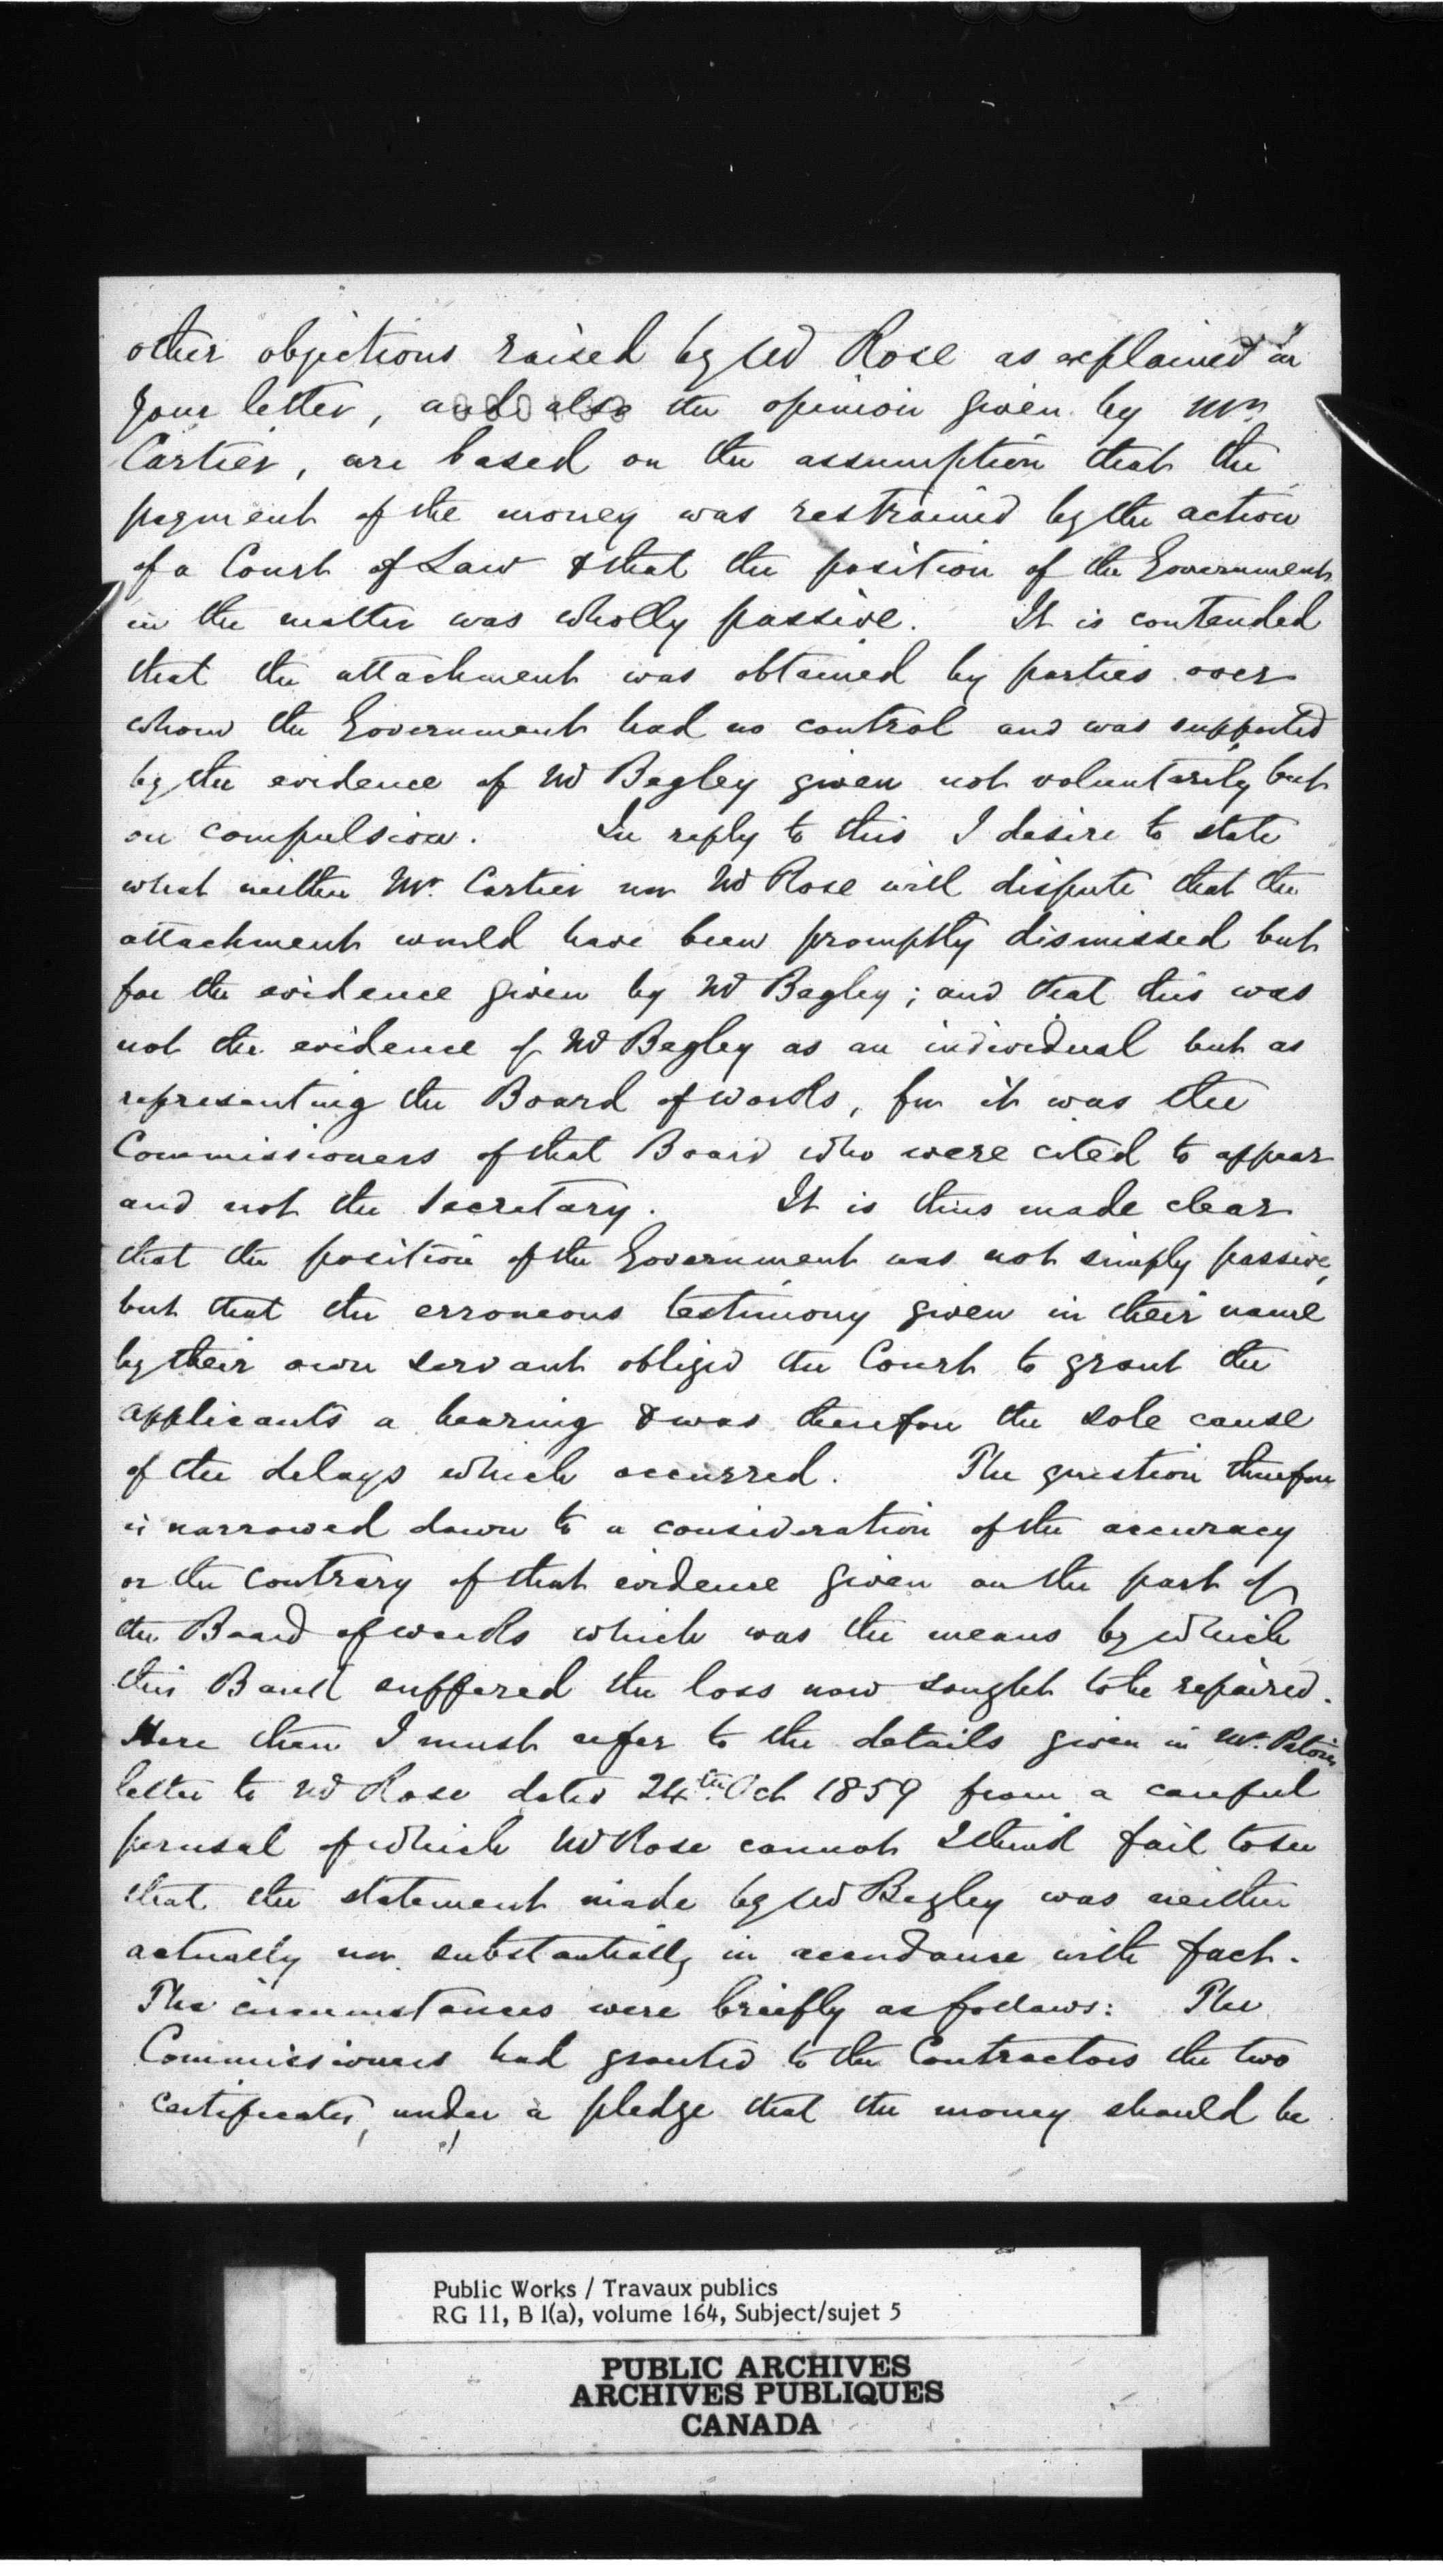 other objections raised by Mr Rose as explained in
your letter, and also the opinion given by Mr
Cartier, are based on the assumption that the
payment of the money was restrained by the action
of a Court of Law & that the position of the Government
in the matter was wholly passive. It is contended
that the attachment was obtained by parties over
whom the Government had no control and was supported
by the evidence of Mr Begley given not voluntarily but
on compulsion. In reply to this I desire to state
what neither Mr. Cartier nor Mr Rose will dispute that the
attachment would have been promptly dismissed but
for the evidence given by Mr Begley; and that this was
not the evidence of Mr Begley as an individual but as
representing the Board of Works, for it was the
Commissioners of that Board who were cited to appear
and not the Secretary. It is thus made clear
that the position of the Government was not simply passive,
but that the erroneous testimony given in their name
by their own servant obliged the Court to grant the
applicants a hearing & was therefore the sole cause
of the delays which occurred. The question therefore
is narrowed down to a consideration of the accuracy
or the contrary of that evidence given on the part of
the Board of Works which was the means by which
this Bank suffered the loss now sought to be repaired.
Here then I must refer to the details given in Mr. Paton's
letter to Mr Rose dated 24th Oct 1859 from a careful
perusal of which Mr Rose cannot I think fail to see
that the statement made by Mr Begley was neither
actually nor substantially in accordance with fact.
The circumstances were briefly as follows: The
Commissioners had granted to the Contractors the two
certificates, under a pledge that the money should be
Public Works / Travaux publics
RG 11, B 1(a), volume 164, Subject/sujet 5
PUBLIC ARCHIVES
ARCHIVES PUBLIQUES
CANADA